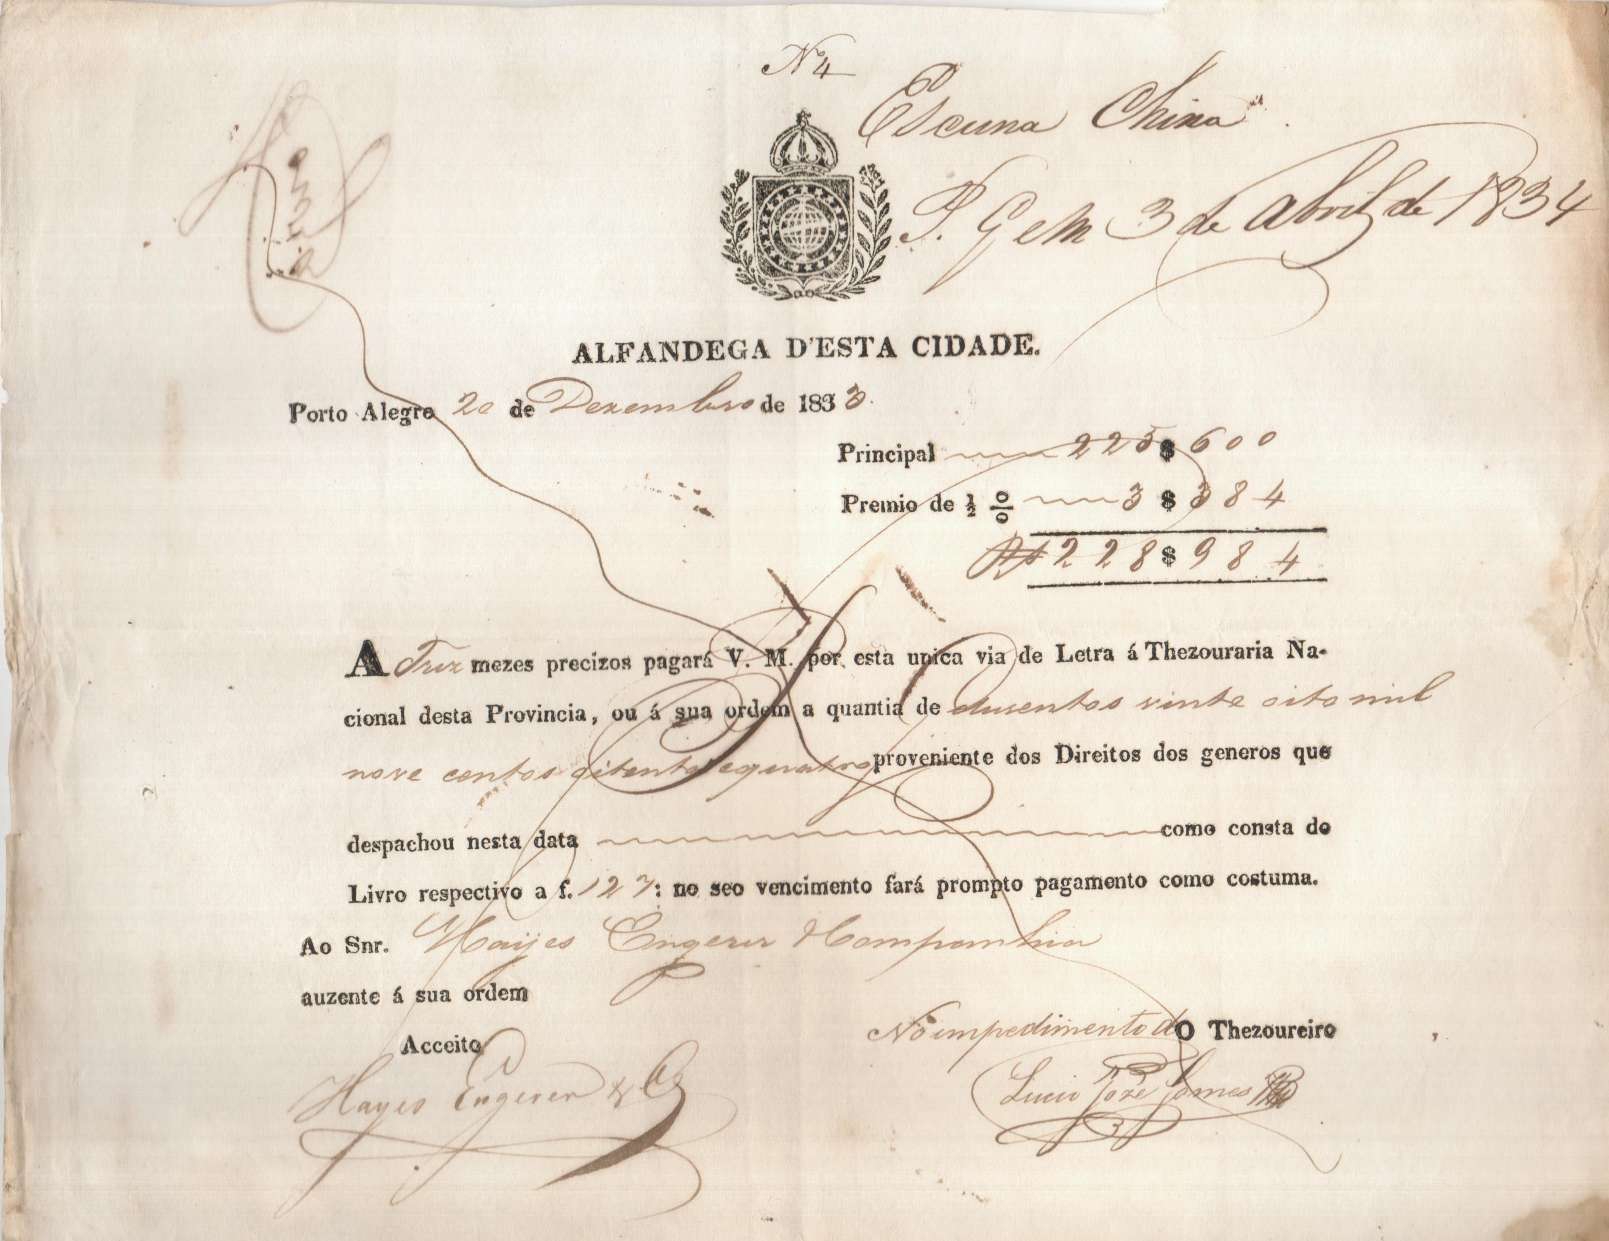 Nº 4
Escuna China
P. G em 3 de Abril de 1834
ALFANDEGA D'ESTA CIDADE.
Porto Alegre 20 de Dezembro de 1833.
Principal 225$600
Premio de ½ % 3$384
Rs 228$984
A Trez mezes precizos pagará V. M. por esta unica via de Letra á Thezouraria Na-
cional desta Provincia, ou á sua ordem a quantia de dusentos vinte oito mil
nove centos oitenta e quatro proveniente dos Direitos dos generos que
despachou nesta data como consta do
Livro respectivo a f. 127: no seo vencimento fará prompto pagamento como costuma.
Ao Snr. Hayes Engerer & Companhia
auzente á sua ordem
Acceito
No impedimento do O Thezoureiro
Hayes Engerer & Cª
Lucio Joze Gomes